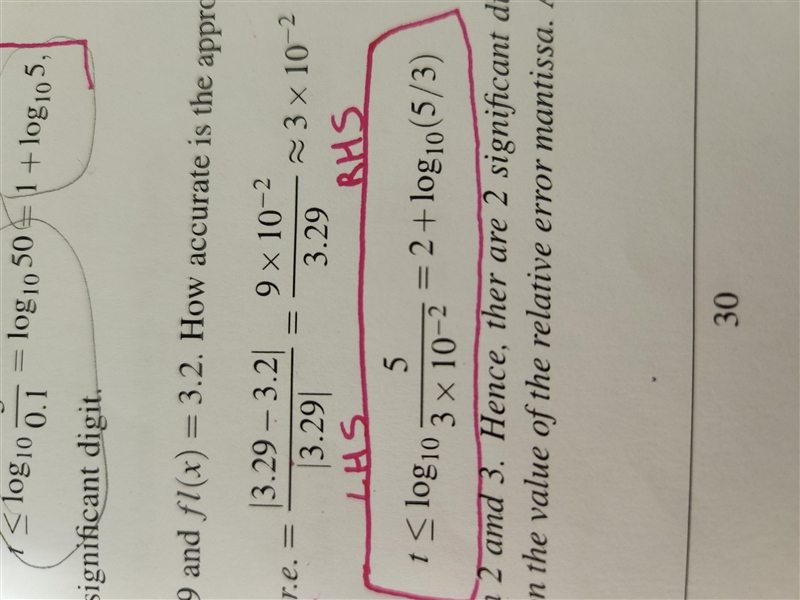 t ≤ log₁₀ 5/0.1 = log₁₀ 50 = 1 + log₁₀ 5,
significant digit.
9 and fl(x) = 3.2. How accurate is the appro
r.e. = |3.29 − 3.2|/|3.29| = 9 × 10⁻²/3.29 ≈ 3 × 10⁻²
LHS RHS
t ≤ log₁₀ 5/(3 × 10⁻²) = 2 + log₁₀(5/3)
2 amd 3. Hence, ther are 2 significant di
n the value of the relative error mantissa.
30